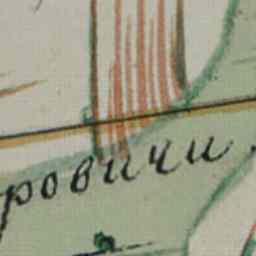 ровичи